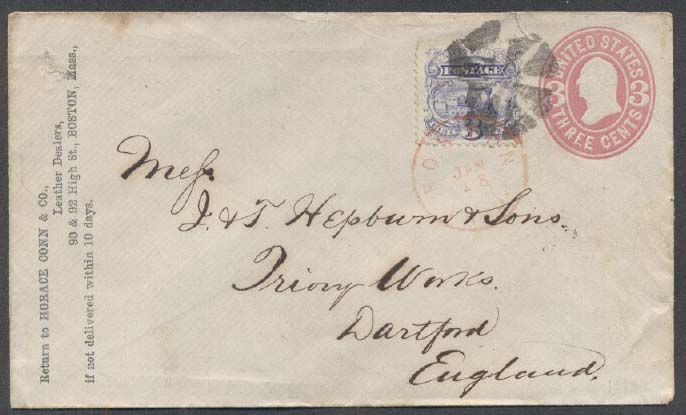 Return to HORACE CONN & CO.,
Leather Dealers,
90 & 92 High St., BOSTON, Mass.,
if not delivered within 10 days.
POSTAGE
3
UNITED STATES
3 3
THREE CENTS
BOSTON
JAN
18
Mess.
J. & T. Hepburn & Sons.
Priory Works.
Dartford
England.